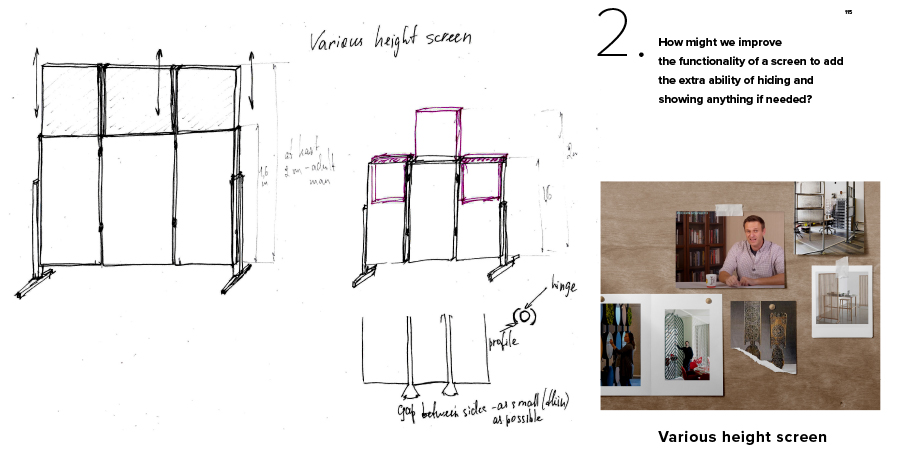 Various height screen
1,6
m
at least
2 m - adult
man
1,6
2m
hinge
profile
gap between sides - as small (thin)
as possible
2.
115
How might we improve
the functionality of a screen to add
the extra ability of hiding and
showing anything if needed?
Various height screen